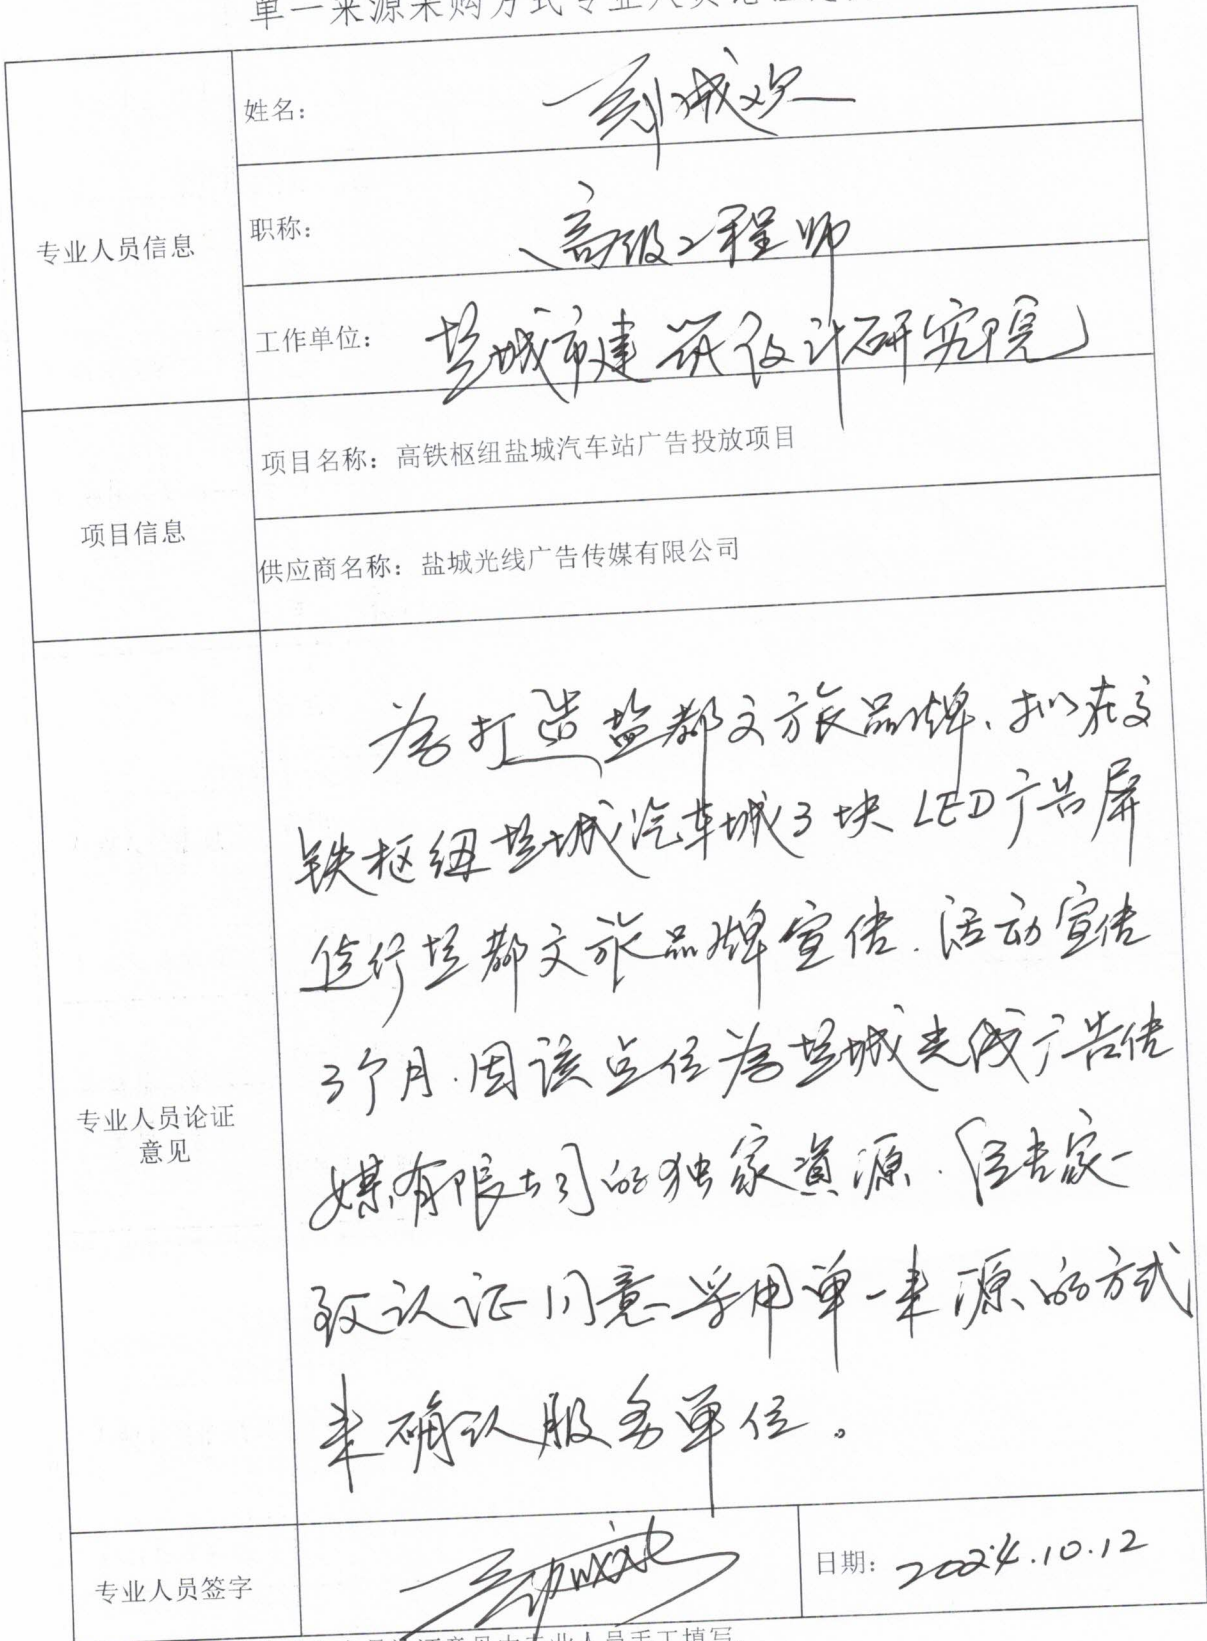 单一来源采购方式专业人员论证意见
专业人员信息
姓名：
职称：高级工程师
工作单位：盐城市建筑设计研究院
项目信息
项目名称：高铁枢纽盐城汽车站广告投放项目
供应商名称：盐城光线广告传媒有限公司
专业人员论证
意见
为打造盐都文旅品牌、拟在高
铁枢纽盐城汽车城3块LED广告屏
进行盐都文旅品牌宣传、活动宣传
3个月.因该点位为盐城光线广告传
媒有限公司的独家资源.经专家一
致认证同意采用单一来源的方式
来确认服务单位。
专业人员签字
日期：2024.10.12
论证意见由专业人员手工填写